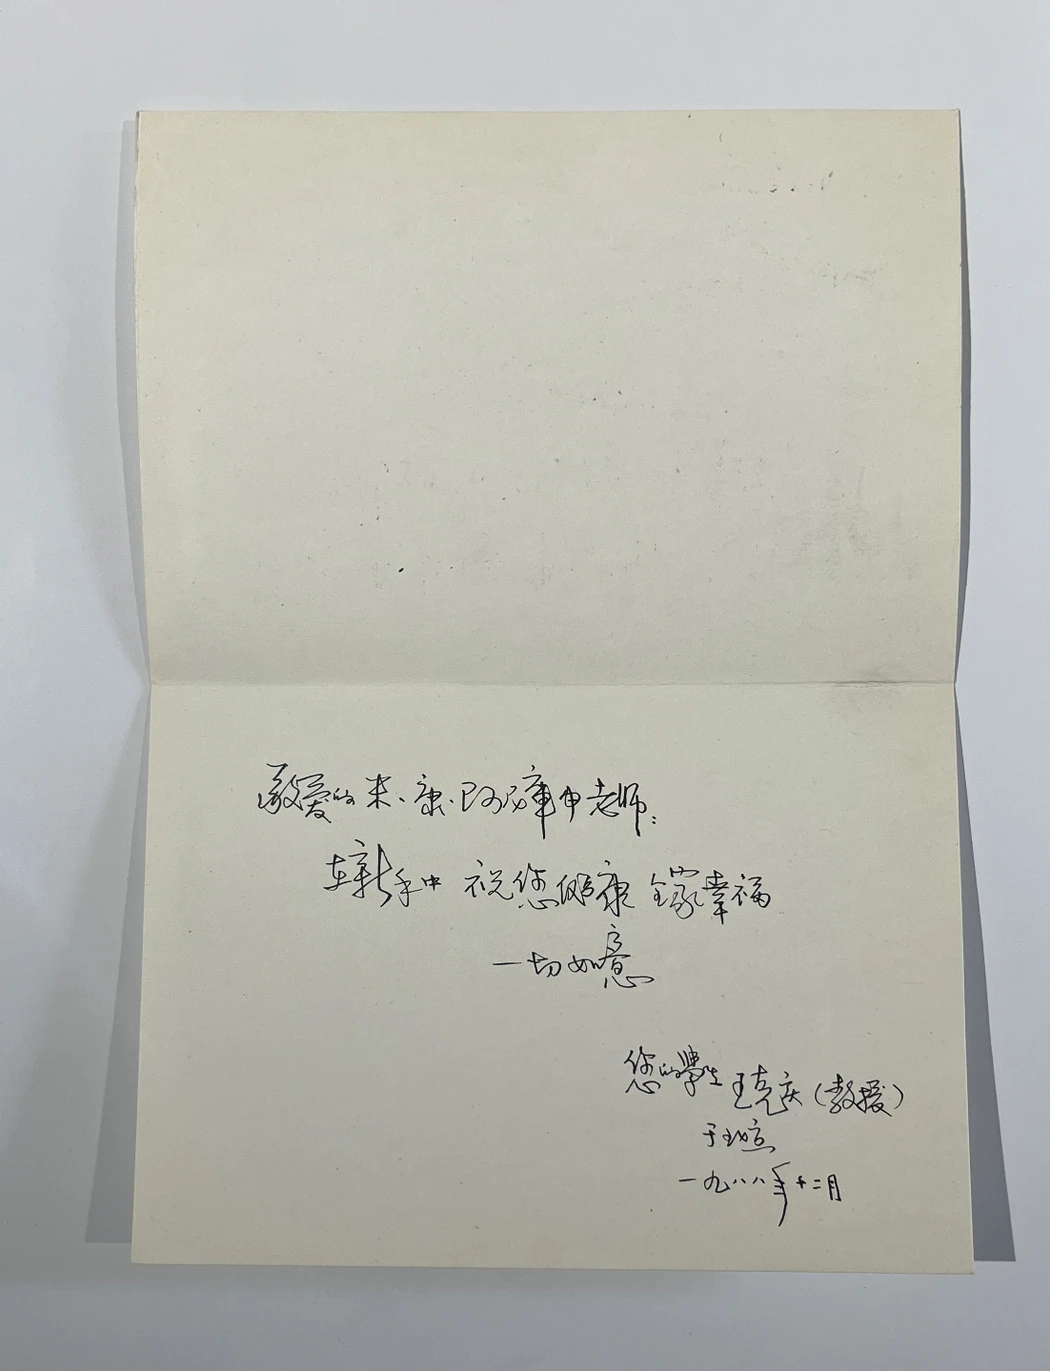 敬爱的米·康·阿尼庫申老师:
在新年中 祝您健康 全家幸福
一切如意
您的學生 王克庆(教授)
于北京
一九八八年十二月